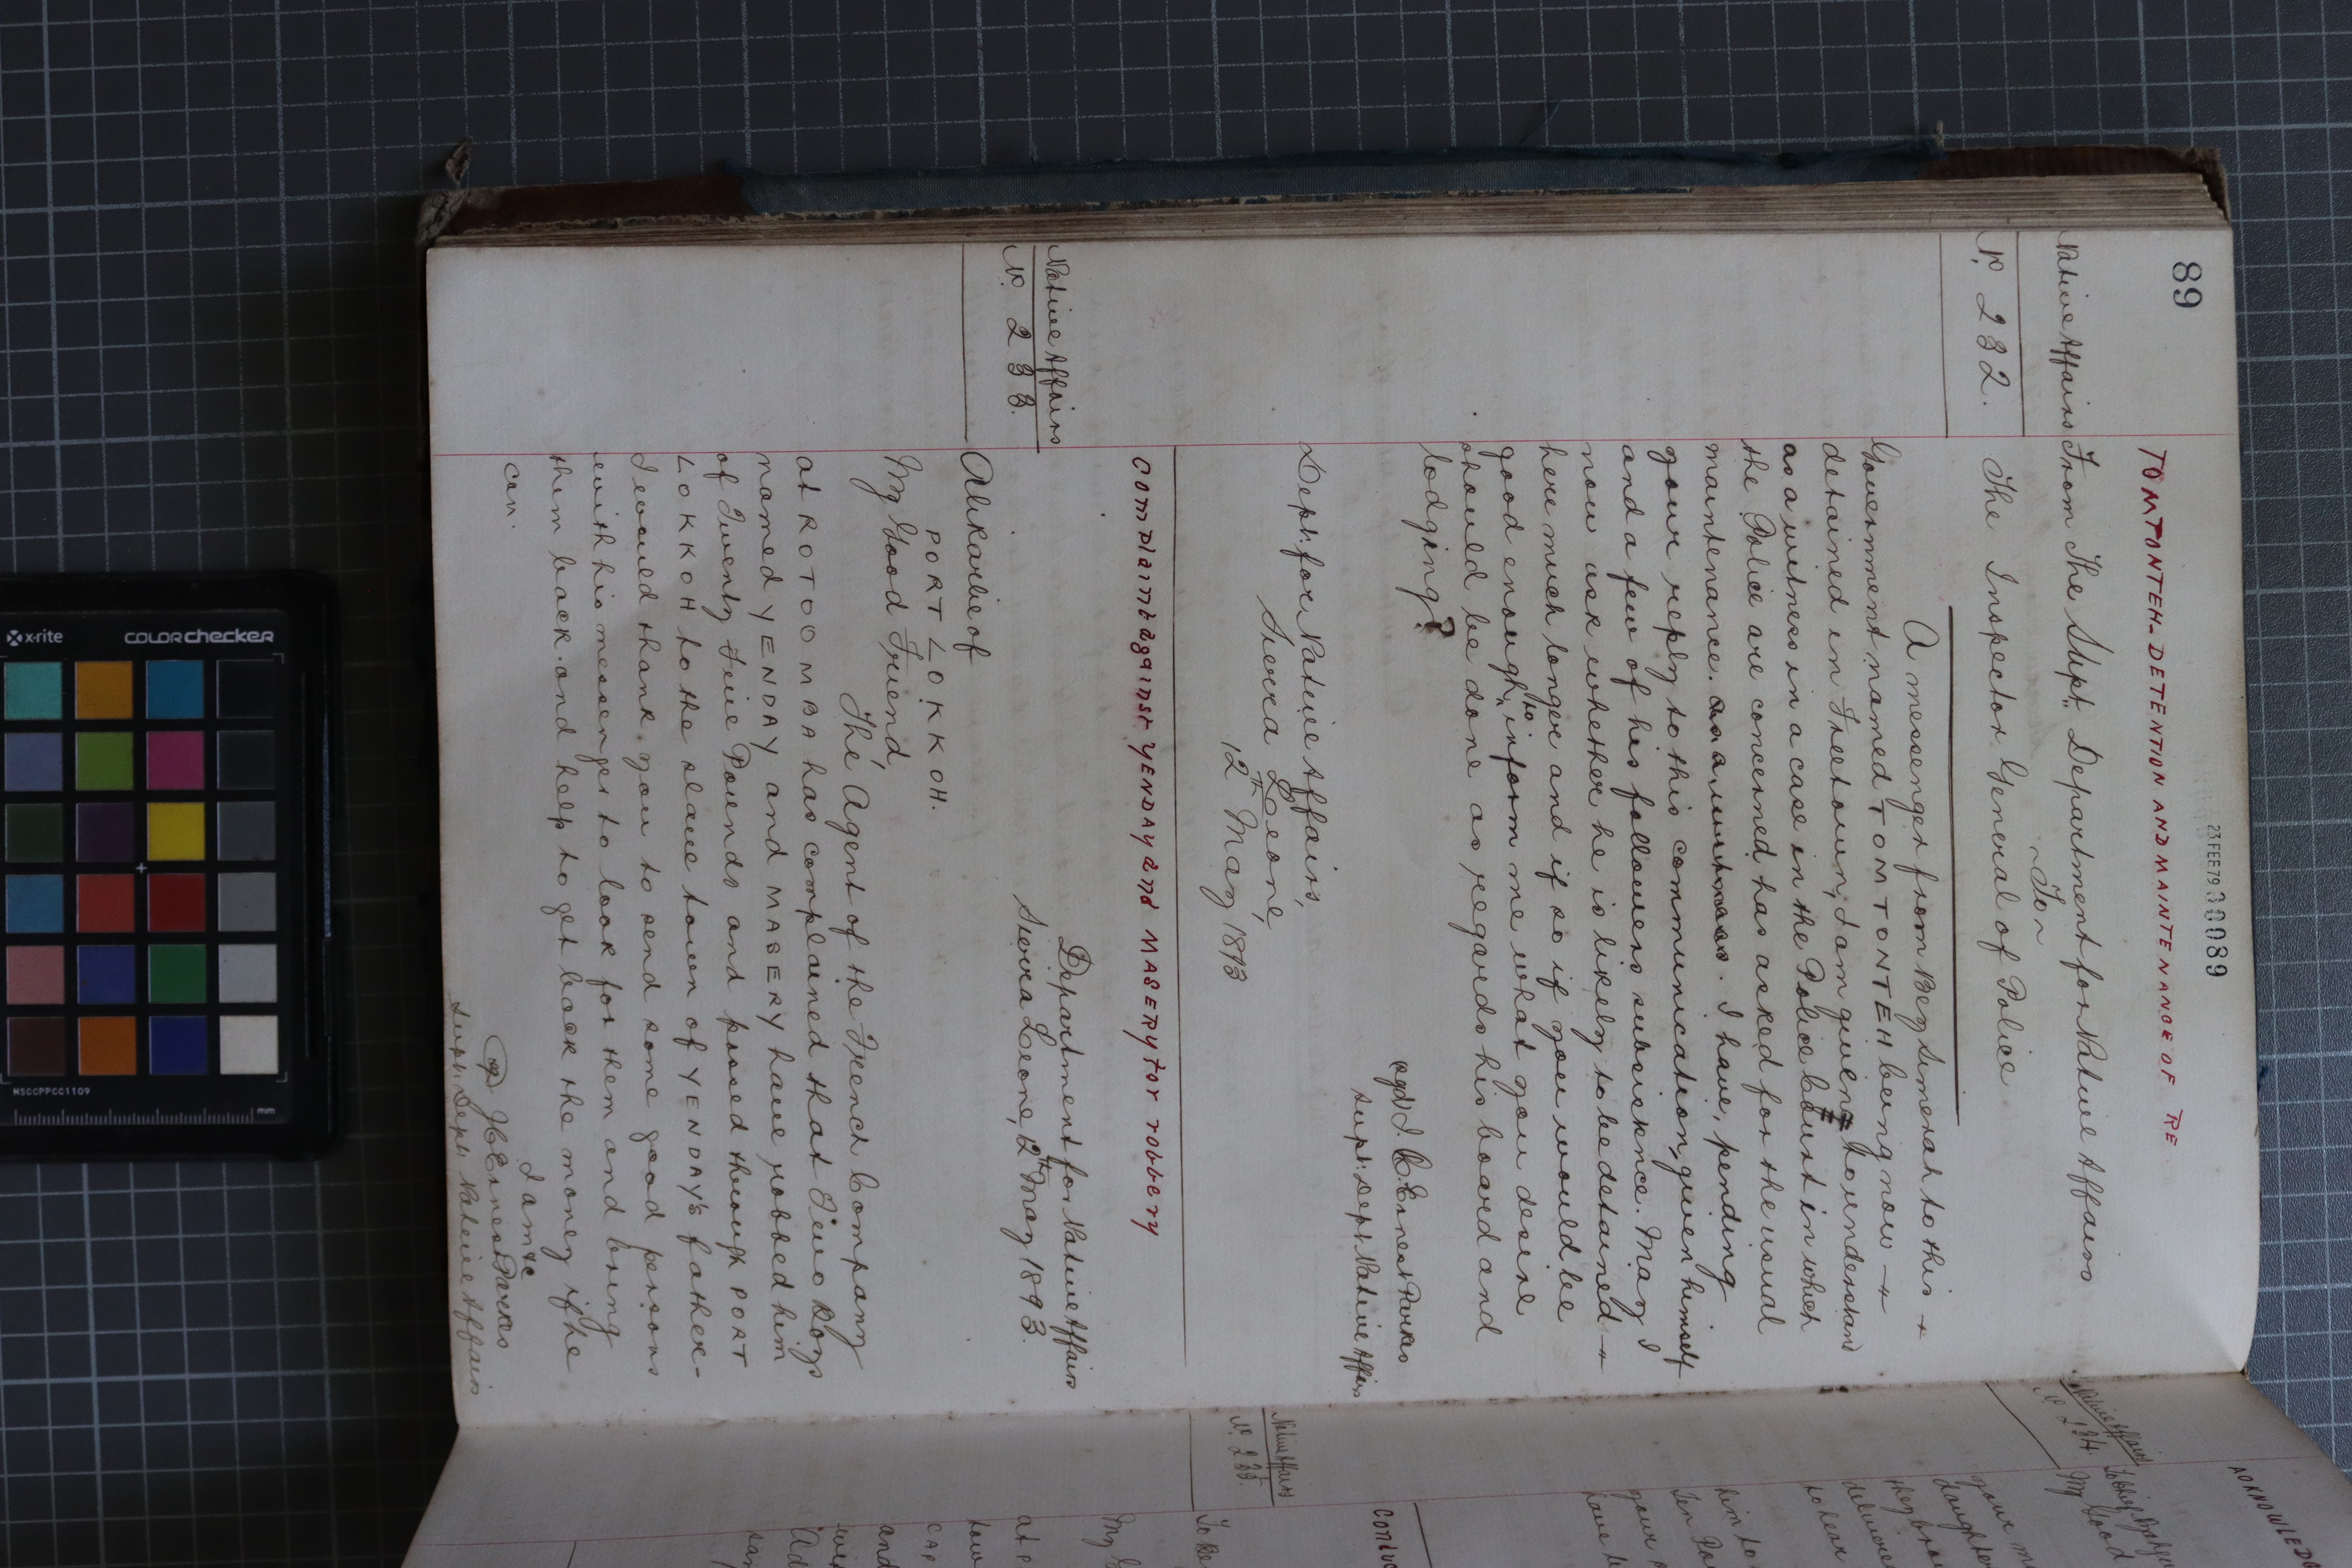 89
23 FEB 79 000089
TOMTONTEH_DETENTION AND MAINTENANCE OF RE
Native Affairs
No. 232.
From The Supt. Department for Native Affairs
~To~
The Inspector General of Police
A messenger from Bey Simerah to this
Government named TOMTONTEH being now
detained in Freetown, I am given to understand
as a witness in a case in the Police Court in which
the Police are concerned has asked for the usual
maintenance. as a witness. I have, pending
your reply to this communication, given himself
and a few of his followers subsistence. May I
now ask whether he is likely to be detained
here much longer and if so if you would be
good enough to inform me what you desire
should be done as regards his board and
lodging?
sgd/ J. C. Ernest Parkes
Supt: Dept Native Affairs
Dept: for Native Affairs,
Sierra Leone,
12th May 1893
Complaint against YENDAY and MASERY for robbery
Native Affairs
No. 233.
Department for Native Affairs
Sierra Leone, 12th May 1893.
Alikarlie of
PORT LOKKOH.
My Good Friend,
The Agent of the French Company
at ROTOOMBA has complained that Two Boys
named YENDAY and MASERY have robbed him
of Twenty Five Pounds and passed through PORT
LOKKOH to the slave town of YENDAY's father_
I would thank you to send some good persons
with his messenger to look for them and bring
them back and help to get back the money if he
can.
I am &c
J C Ernest Parkes
Supt: Dept. Native Affairs
ACKNOWLED
Native Affairs
No 234.
My Good
your m
daughter
they
deliver
to hear
him to
Ten Po
your
have
Native Affairs
No. 235.
My G
at P
tow
CAP
and
x-rite
COLORchecker
MSCCPPCC1109
mm